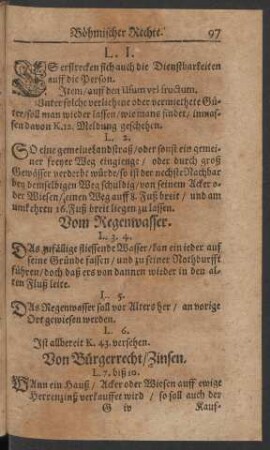 Böhmischer Rechte. 97
L. 1.
ES erstrecken sich auch die Dienstbarkeiten
auff die Person.
Item/ auff den Usum vel fructum.
Unter solche verliehene oder vermiethete Gü-
ter/ soll man wieder lassen/ wie mans findet/ inmas-
sen davon K. 12. Meldung geschehen.
L. 2.
SO eine gemeine Landstraß/ oder sonst ein gemei-
ner freyer Weg eingienge/ oder durch groß
Gewässer verderbt würde/ so ist der nechste Nachbar
bey demselbigen Weg schuldig/ von seinem Acker o-
der Wiesen/ einen Weg auff 8. Fuß breit/ und am
umkehren 16. Fuß breit liegen zu lassen.
Vom Regenwasser.
L. 3. 4.
DAs zufällige fliessende Wasser/ kan ein ieder auf
seine Gründe fassen/ und zu seiner Nothdurfft
führen/ doch daß ers von dannen wieder in den al-
ten Fluß leite.
L. 5.
DAs Regenwasser soll vor Alters her/ an vorige
Ort gewiesen werden.
L. 6.
Ist allbereit K. 43. versehen.
Von Bürgerrecht/ Zinsen.
L. 7. biß 10.
WAnn ein Hauß/ Acker oder Wiesen auff ewige
Herrenzinß verkauffet wird/ so soll auch der
G iv Kauf-